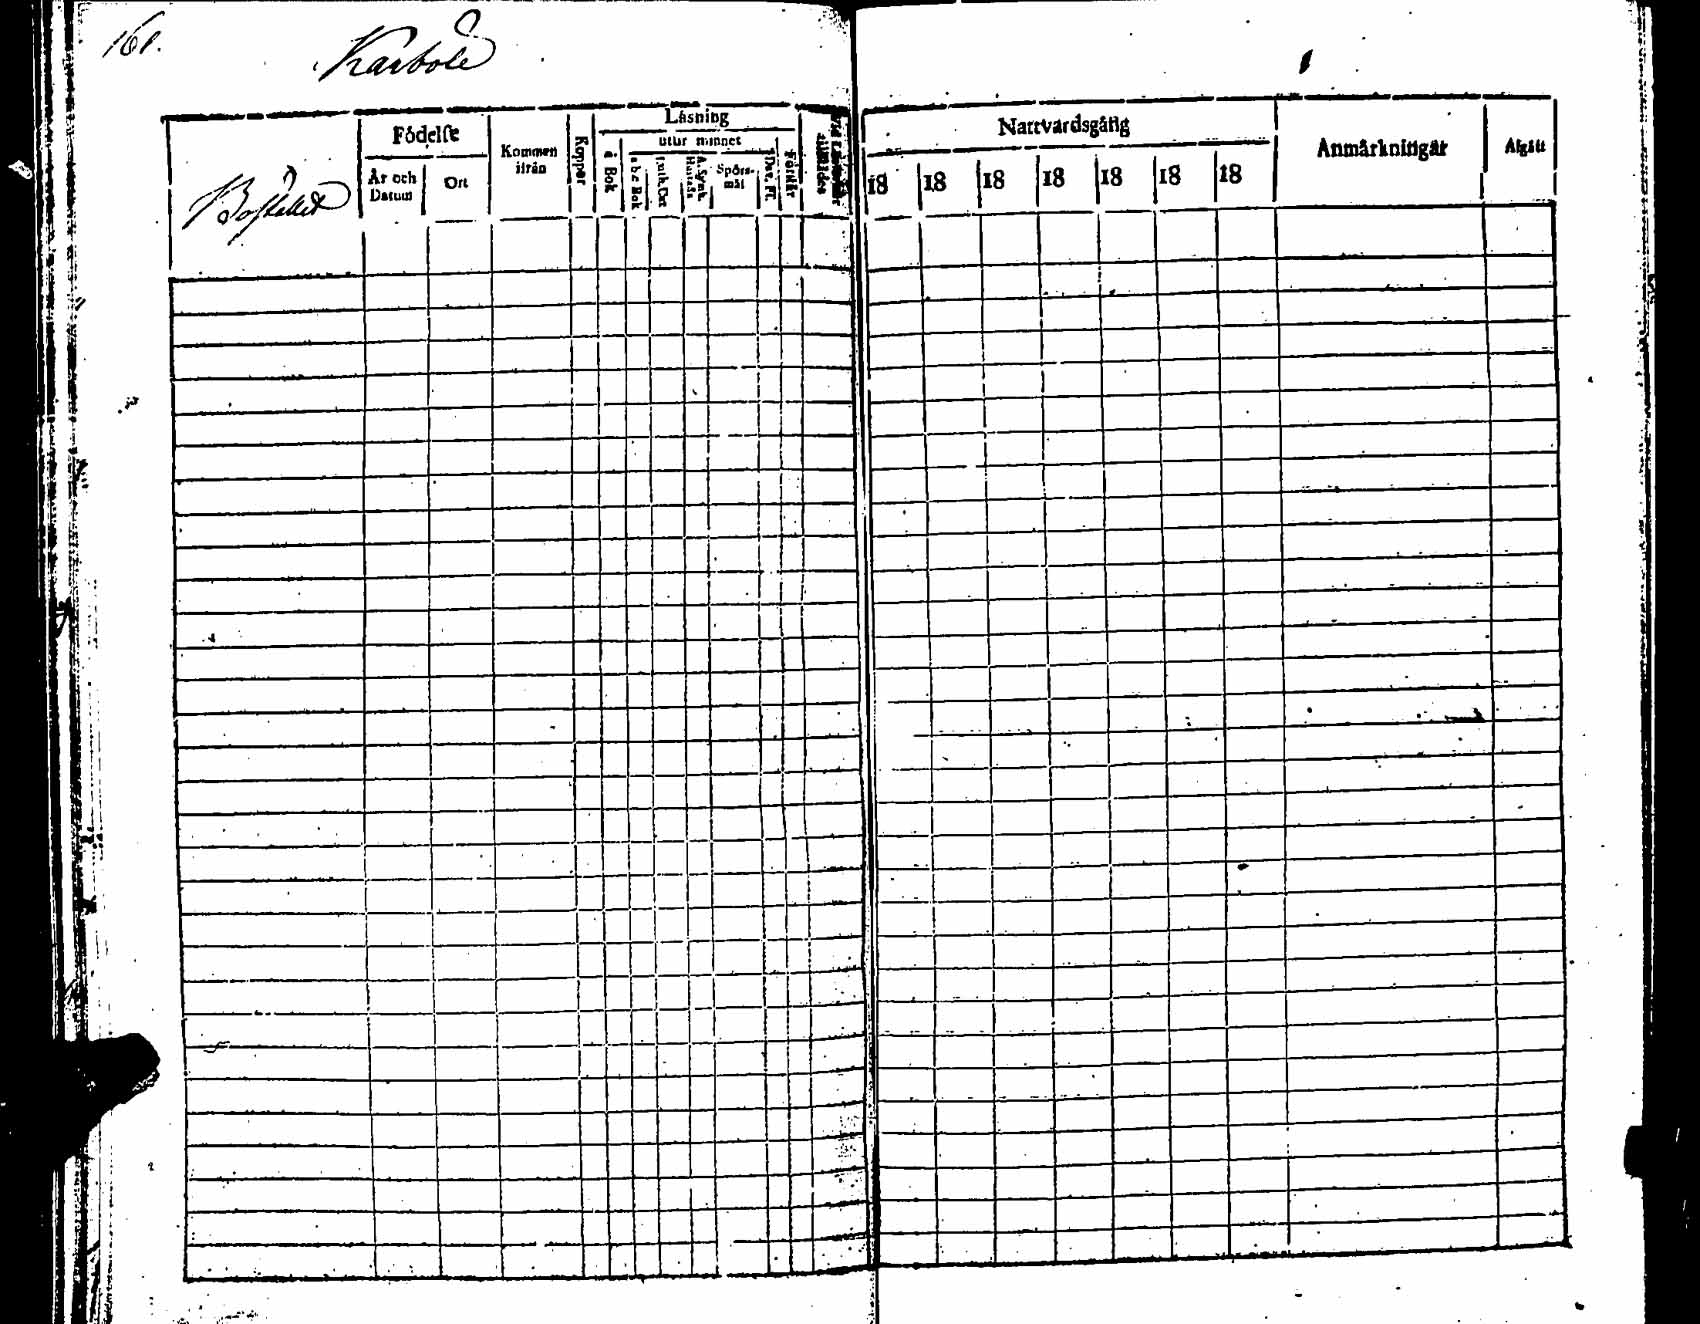 161.
Karbole
Bostället
Födelse
År och Datum
Ort
Kommen ifrån
Koppor
Läsning
å Bok
utur minnet
a b c Bok
Luth. Cat
A. Symb. Hustafl.
Spörs-mål
Dav. Ps.
Förstår
Nattvardsgång
18 18 18 18 18 18 18
Anmärkningar
Afgått